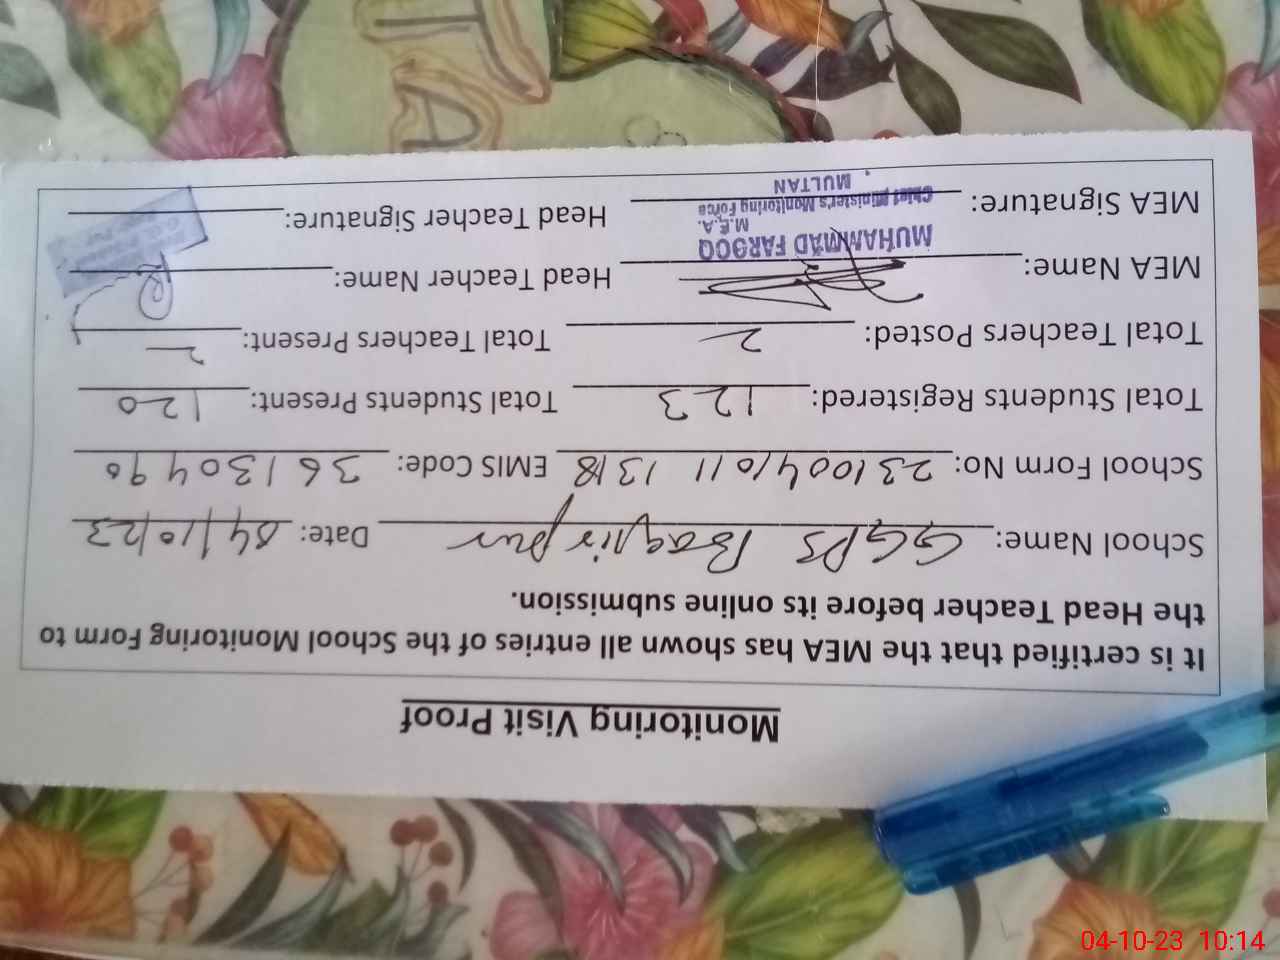 Monitoring Visit Proof
It is certified that the MEA has shown all entries of the School Monitoring Form to
the Head Teacher before its online submission.
School Name: GGPS Baqir pur Date: 04/10/23
School Form No: 231004101113 18 EMIS Code: 36130490
Total Students Registered: 123 Total Students Present: 120
Total Teachers Posted: 2 Total Teachers Present: 2
MEA Name: Head Teacher Name:
MUHAMMAD FAROOQ
M.E.A.
Chief Minister's Monitoring Force
MULTAN
MEA Signature: Head Teacher Signature:
04-10-23 10:14